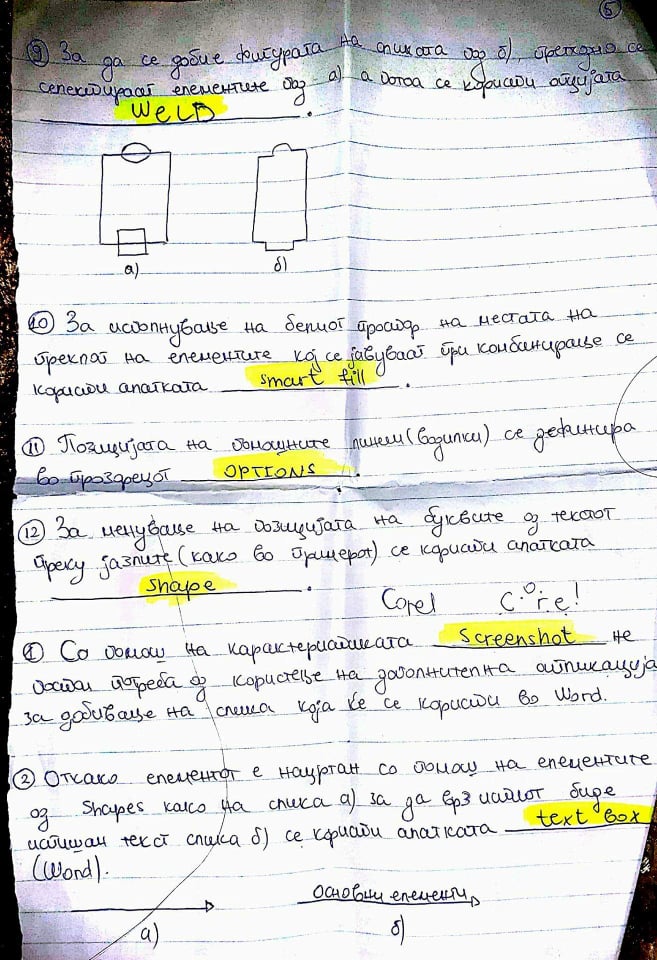 5
9 За да се добие фигурата на сликата од б), претходно се
селектираат елементите од а) а потоа се користи опцијата
WELD.
а) б)
10 За исполнување на белиот простор на местата на
преклоп на елементите кој се јавуваат при комбинирање се
користи алатката smart fill.
11 Позицијата на помошните линии (водилки) се дефинира
во прозорецот OPTIONS.
12 За менување на позицијата на буквите од текстот
преку јазлите (како во примерот) се користи алатката
shape.
Corel Corel
1 Со помош на карактеристиката Screenshot не
постои потреба од користење на дополнителна апликација
за добивање на слика која ќе се користи во Word.
2 Откако елементот е нацртан со помош на елементите
од Shapes како на слика а) за да врз истиот биде
испишан текст слика б) се користи алатката text box
(Word).
Основни елементи
а) б)